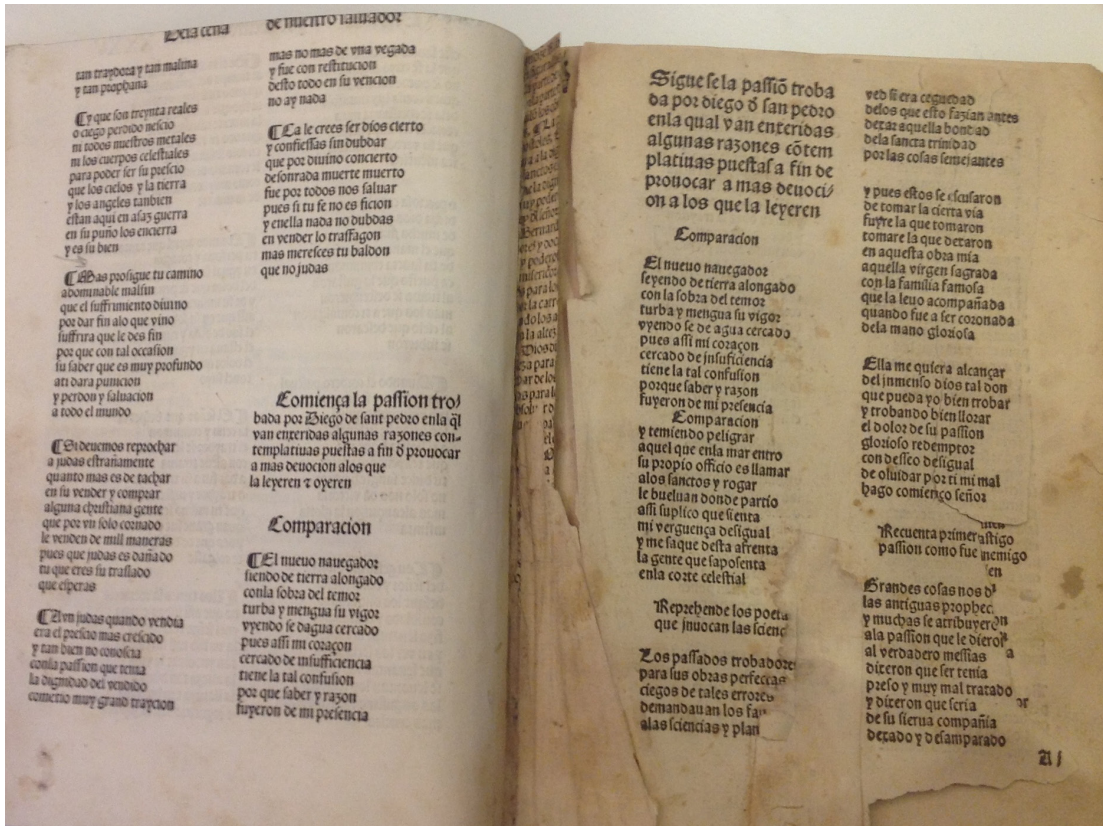 Dela cena de nuestro saluador
tan traydora y tan malina
y tan prophana
Cy que son treynta reales
o ciego perdido nescio
ni todos nuestros metales
ni los cuerpos celestiales
para poder ser su prescio
que los cielos y la tierra
y los angeles tanbien
estan aqui en asaz guerra
en su puño los encierra
y es su bien
Mas prosigue tu camino
abominable malsin
que el suffrimiento diuino
por dar fin alo que vino
suffrira que le des fin
por que con tal occasion
su saber que es muy profundo
ati dara punicion
y perdon y saluacion
a todo el mundo
Si deuemos reprochar
a judas estrañamente
quanto mas es de tachar
en su vender y comprar
alguna christiana gente
que por vn solo cornado
le venden de mill maneras
pues que judas es dañado
tu que eres su traslado
que esperas
Avn judas quando vendia
era el prescio mas crescido
y tan bien no conoscia
conla passion que tenia
la dignidad del vendido
cometio muy grand traycion
mas no mas de vna vegada
y fue con restitucion
desto todo en su vencion
no ay nada
Ca le crees ser dios cierto
y confiessas sin dubdar
que por diuino concierto
desonrada muerte muerto
fue por todos nos saluar
pues si tu fe no es ficion
y enella nada no dubdas
en vender lo traffagon
mas meresces tu baldon
que no judas
Comiença la passion tro-
bada por Diego de sant pedro enla q̃l
van enxeridas algunas razones con-
templatiuas puestas a fin d̃ prouocar
a mas deuocion alos que
la leyeren ⁊ oyeren
Comparacion
El nueuo nauegador
siendo de tierra alongado
conla sobra del temor
turba y mengua su vigor
vyendo se dagua cercado
pues assi mi coraçon
cercado de insufficiencia
tiene la tal confusion
por que saber y razon
fuyeron de mi presencia
Sigue se la passiõ troba
da por diego d̃ san pedro
enla qual van enxeridas
algunas razones cõtem
platiuas puestas a fin de
prouocar a mas deuoci-
on a los que la leyeren
Comparacion
El nueuo nauegador
seyendo de tierra alongado
con la sobra del temor
turba y mengua su vigor
vyendo se de agua cercado
pues assi mi coraçon
cercado de jnsuficiencia
tiene la tal confusion
porque saber y razon
fuyeron de mi presencia
Comparacion
y temiendo peligrar
aquel que enla mar entro
su propio officio es llamar
alos sanctos y rogar
le bueluan donde partio
assi suplico que sienta
mi verguença desigual
y me saque desta afrenta
la gente que saposenta
enla corte celestial
Reprehende los poeta
que jnuocan las scienc
Los passados trobadores
para sus obras perfectas
ciegos de tales errores
demandauan los fau
alas sciencias y plan
ved si era ceguedad
delos que esto fazian antes
dexar aquella bondad
dela sancta trinidad
por las cosas semejantes
y pues estos se escusaron
de tomar la cierta via
fuyre la que tomaron
tomare la que dexaron
en aquesta obra mia
aquella virgen sagrada
con la familia famosa
que la leuo acompañada
quando fue a ser coronada
dela mano gloriosa
Ella me quiera alcançar
del jnmenso dios tal don
que pueda yo bien trobar
y trobando bien llorar
el dolor de su passion
glorioso redemptor
con desseo desigual
de oluidar por ti mi mal
hago comienço señor
Recuenta primer
passion como fue
Grandes cosas nos d
las antiguas prophec
y muchas se atribuyeron
ala passion que le dieron
al verdadero messias
dixeron que ser tenia
preso y muy mal tratado
y dixeron que seria
de su sierua compañia
dexado y desamparado
A j